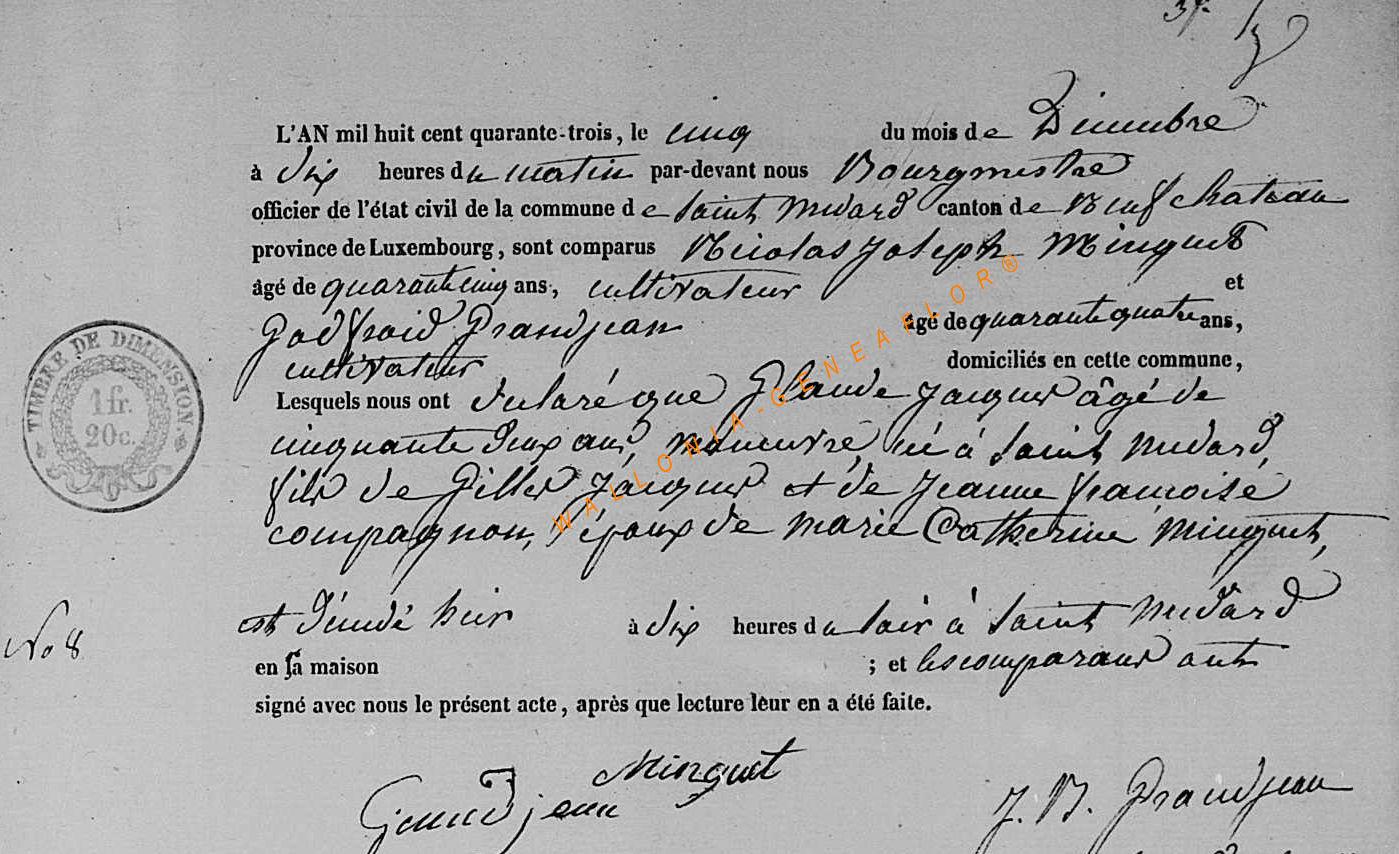 L'AN mil huit cent quarante-trois, le cinq du mois de Décembre
à dix heures du matin par-devant nous Bourgmestre
officier de l'état civil de la commune de Saint Médard canton de Neufchateau
province de Luxembourg, sont comparus Nicolas Joseph Minguet
âgé de quarante cinq ans, cultivateur et
Godfroid Grandjean âgé de quarante quatre ans,
cultivateur domiciliés en cette commune,
Lesquels nous ont declaré que Glaude Jacques âgé de
cinquante deux ans, manœuvre, né à Saint Médard,
fils de Gilles Jacques et de Jeanne françoise
compagnon, époux de Marie Catherine Minguet,
est décédé hier à dix heures du soir à Saint Médard
No 8
en sa maison ; et les comparans ont
signé avec nous le présent acte, après que lecture leur en a été faite.
Minguet
Grandjean J. B. Grandjean
TIMBRE DE DIMENSION.
1 fr.
20 c.
WALLONIA-GENEAFLOR®